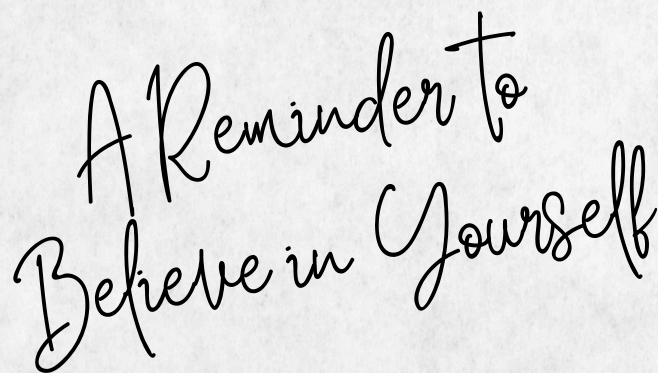 A Reminder to
Believe in Yourself